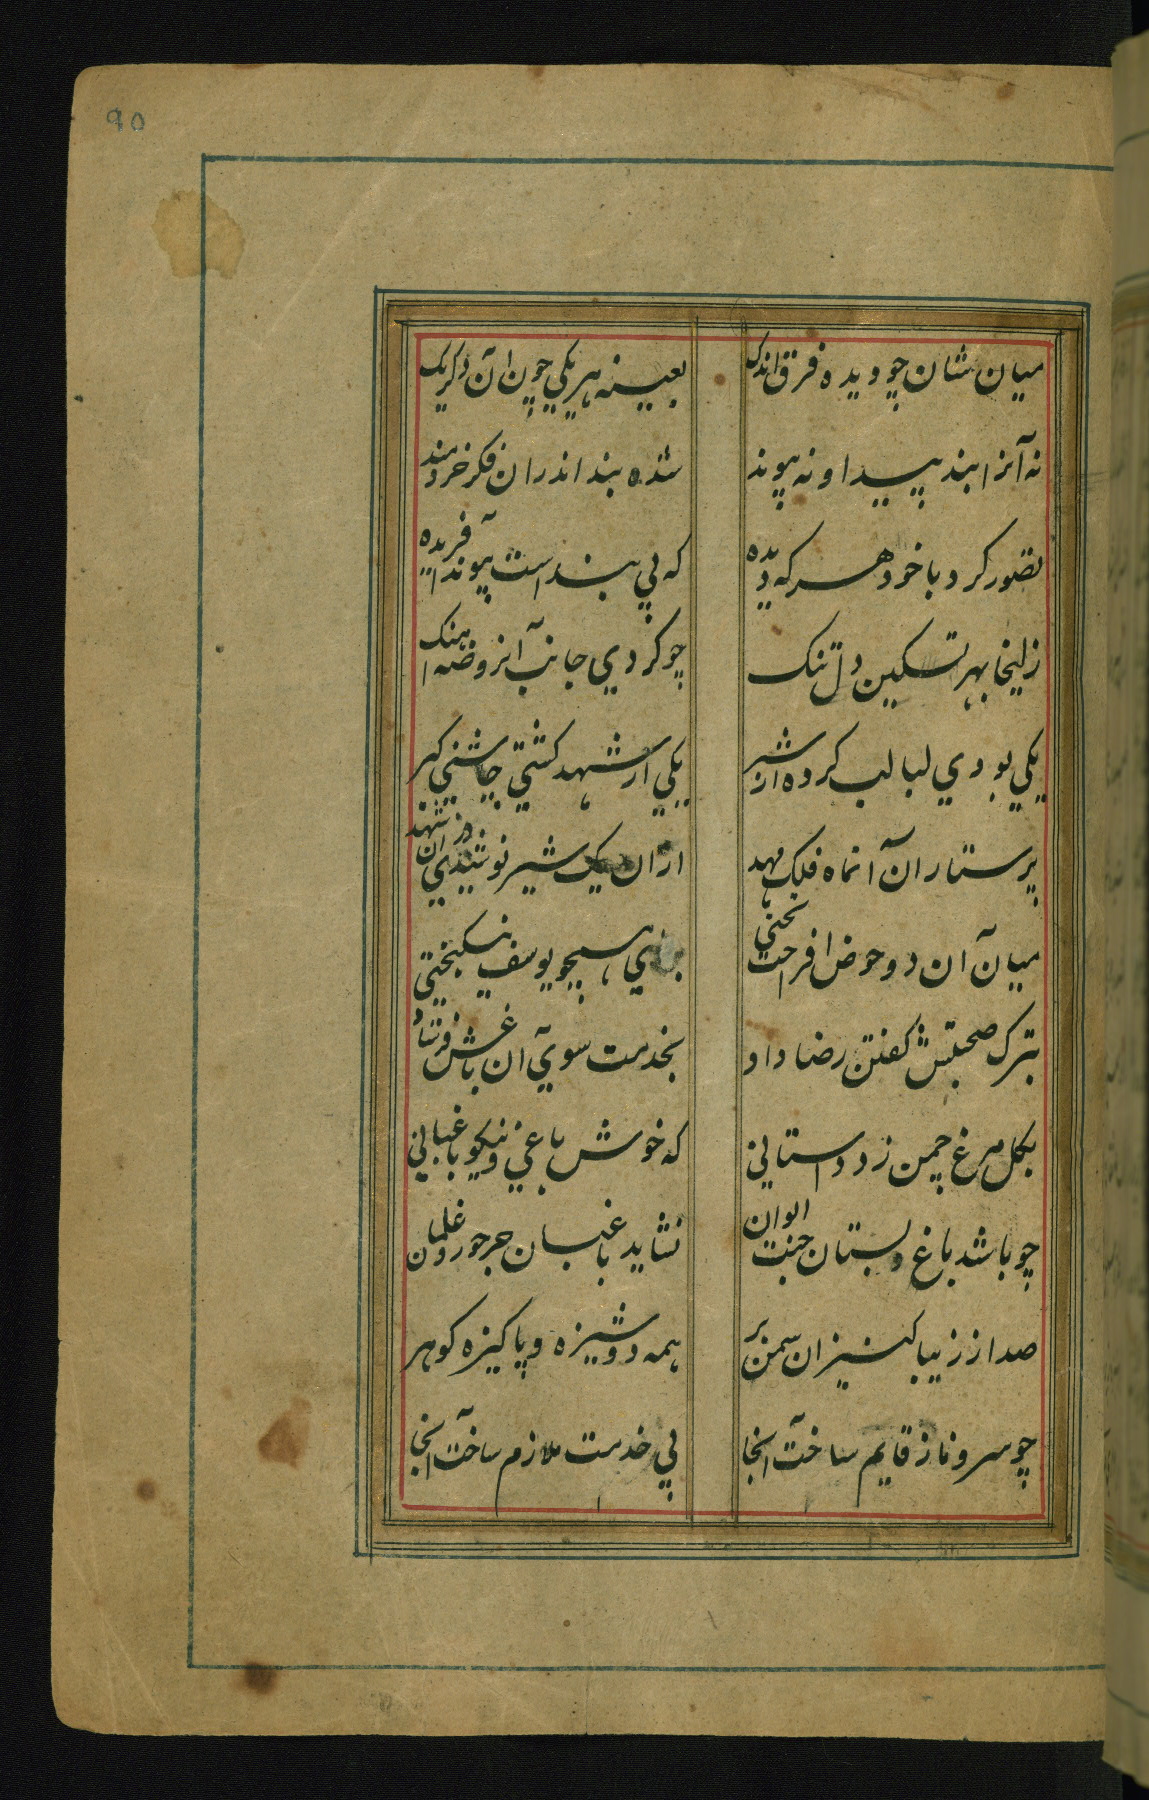 90
میان شان چو دیده فرق اندک بعینه هر یکی چون آن دکر یک
نه آنرا بند پیدا و نه پیوند شده بند اندران فکر خردمند
تصور کرد با خود هر که دیده که بی بند است پیوند آفریده
زلیخا بهر تسکین دل تنک چو کردی جانب آنروضه اهنک
یکی بودی لبالب کرده از شیر یکی از شهد کشتی چاشنی کیر
پرستاران آنماه فلک مهد ازان یک شیر نوشیدی وزان شهد
میان آن دو حوض افراخت تختی برای همچو یوسف نیکبختی
بترک صحبتش کفتن رضا داد بخدمت سوی آن باغش فرستاد
بکل مرغ چمن زد داستانی که خوش باغی و نیکو باغبانی
چو باشد باغ و بستان جنت الوان نشاید باغبان جز حور و غلمان
صد از زیبا کنیزان سمن بر همه دوشیزه و پاکیزه کوهر
چو سرو ناز قایم ساخت آنجا پی خدمت ملازم ساخت آنجا